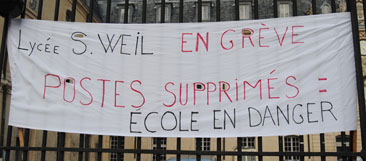 Lycée S. WEIL EN GRÈVE
POSTES SUPPRIMÉS =
ECOLE EN DANGER